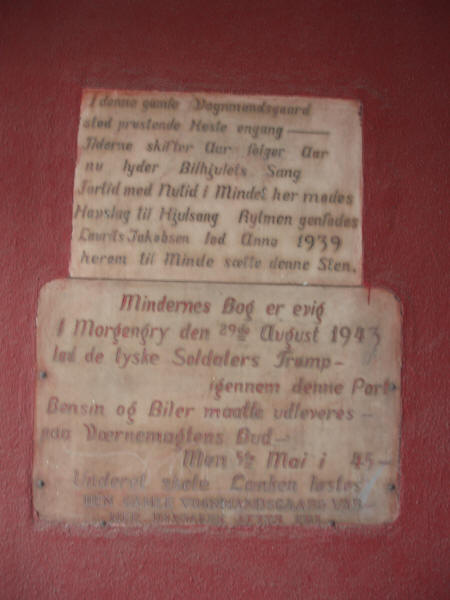 I denne gamle Vognmandsgaard
stod prustende Heste engang —
Tiderne skifter Aar følger Aar
nu lyder Bilhjulets Sang
Fortid med Nutid i Mindet her mødes
Hovslag til Hjulsang Rytmen genfødes
Laurits Jakobsen lod Anno 1939
herom til Minde sætte denne Sten.
Mindernes Bog er evig
I Morgengry den 29de August 1943
lød de tyske Soldaters Tramp —
igennem denne Port
Bensin og Biler maatte udleveres —
paa Værnemagtens Bud —
Men 5/5 Mai i 45 —
Underet skete Lænken løstes
DEN GAMLE VOGNMANDSGAARD VAR